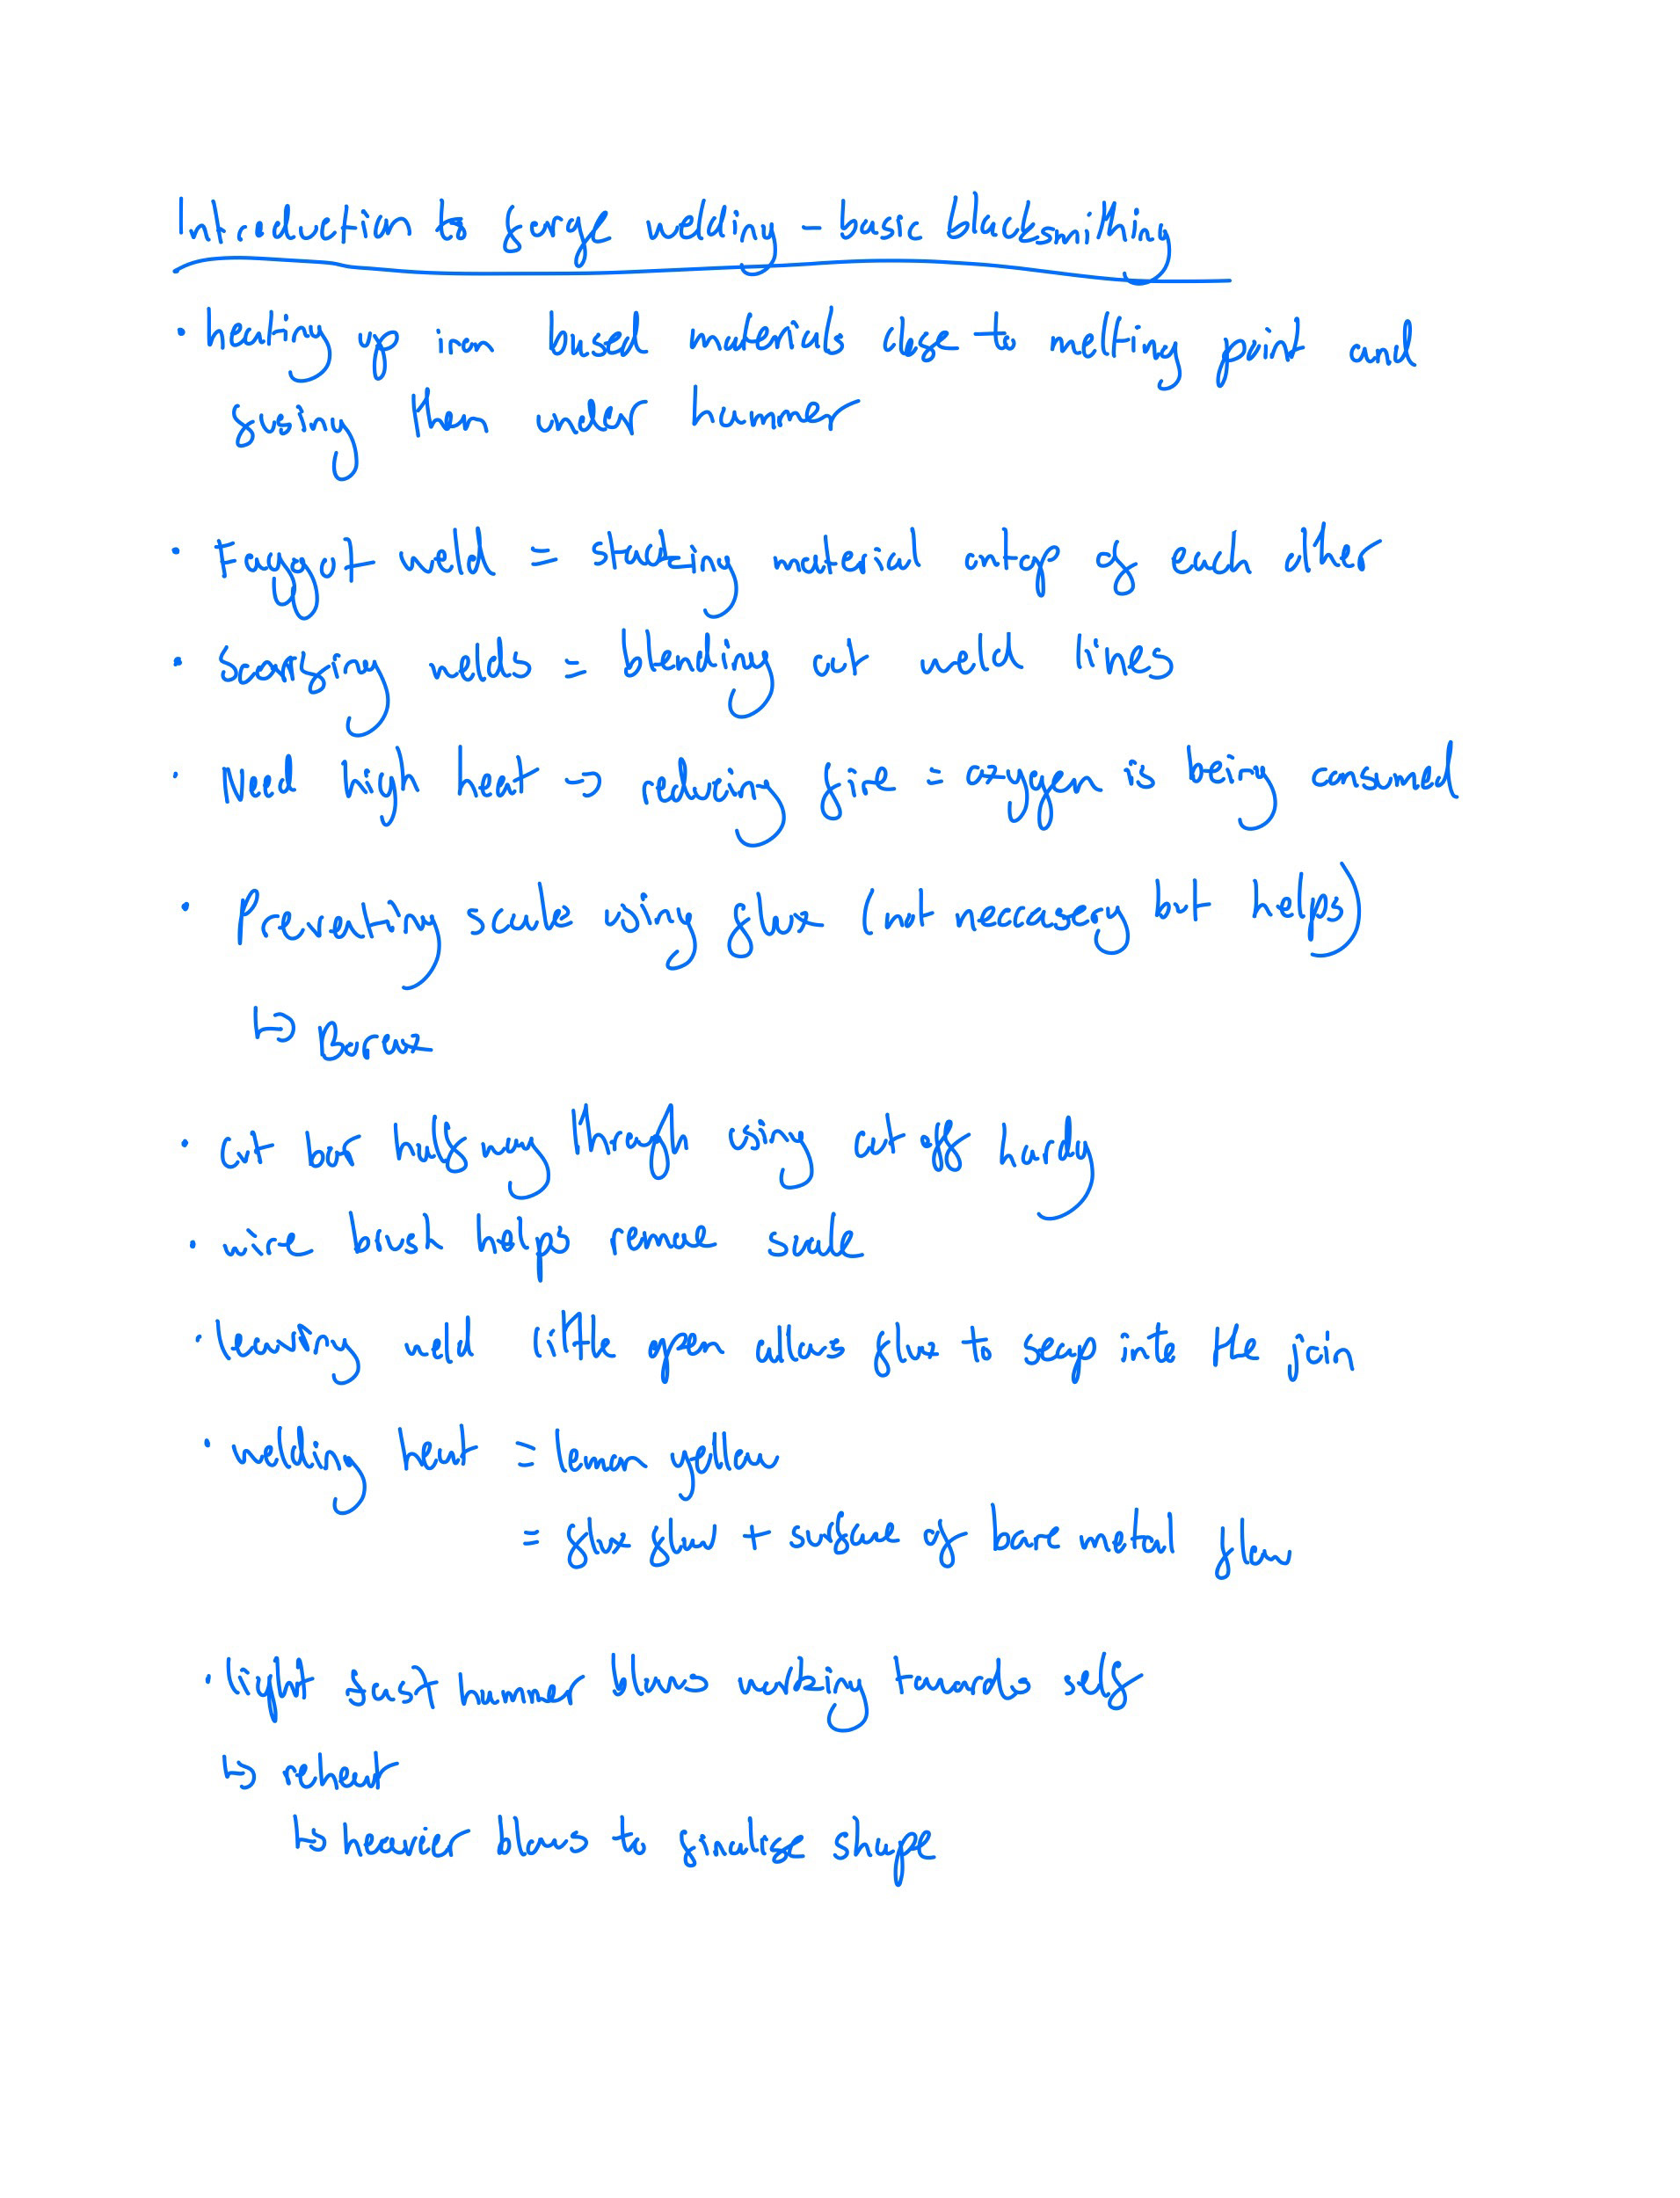 Introduction to forge welding - basic blacksmithing
· heating up iron based materials close to melting point and
fusing them under hammer
· Faggot weld = stacking material ontop of each other
· scarfing welds = blending out weld lines
· Need high heat → reducing fire = oxygen is being consumed
· Preventing scale using flux (not neccasery but helps)
↳ Borax
· cut bar halfway through using cut off hardy
· wire brush helps remove scale
· leaving weld little open allows flux to seap into the join
· welding heat = lemon yellow
= flux flow + surface of bare metal flow
· light fast hammer blows working towards self
↳ reheat
↳ heavier blows to finalise shape